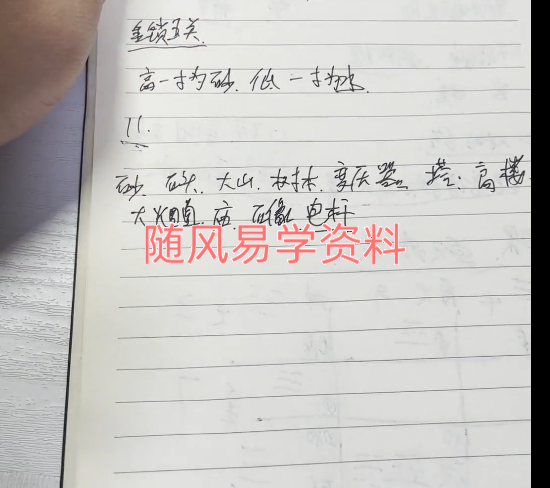 金锁玉关
高一寸为砂.低一寸为水.
11.
砂.石头.大山.树林.变压器 塔:高楼
大烟囱.庙.石像.电杆
随风易学资料